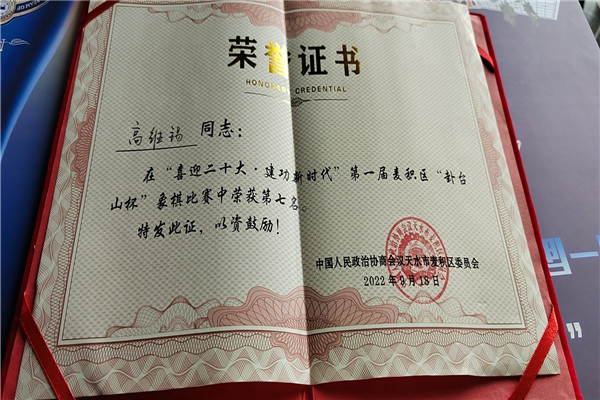 荣誉证书
HONOR CREDENTIAL
高维锡 同志：
在“喜迎二十大·建功新时代”第一届麦积区“卦台
山杯”象棋比赛中荣获第七名。
特发此证，以资鼓励！
中国人民政治协商会议天水市麦积区委员会
2022年9月18日